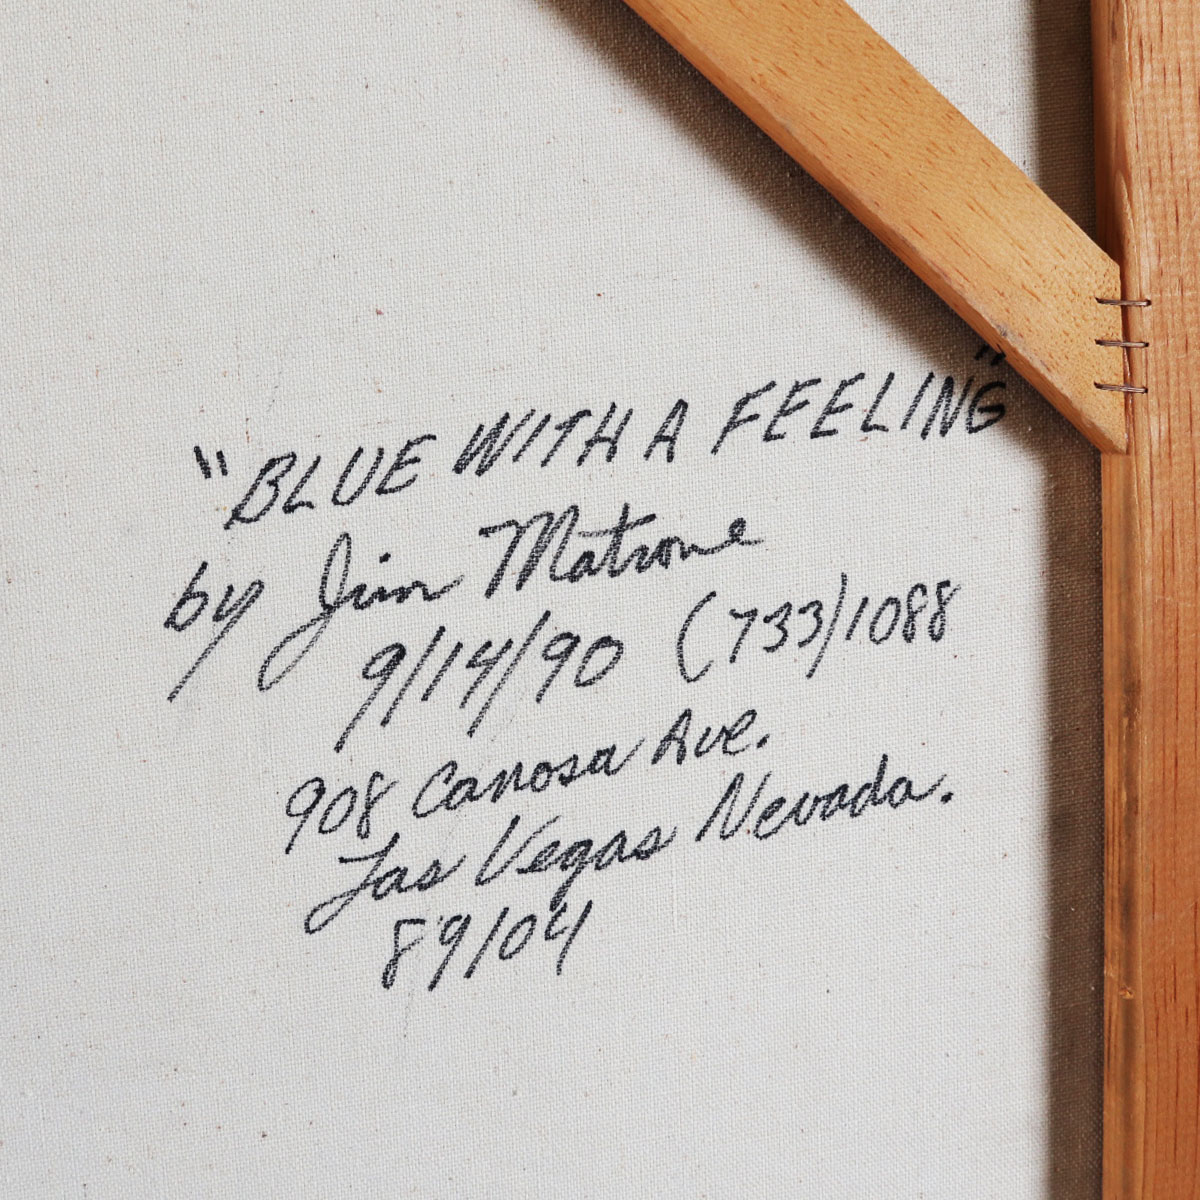 "BLUE WITH A FEELING"
by Jim Matrone
9/14/90 (733)1088
908 Canosa Ave.
Las Vegas Nevada.
89104